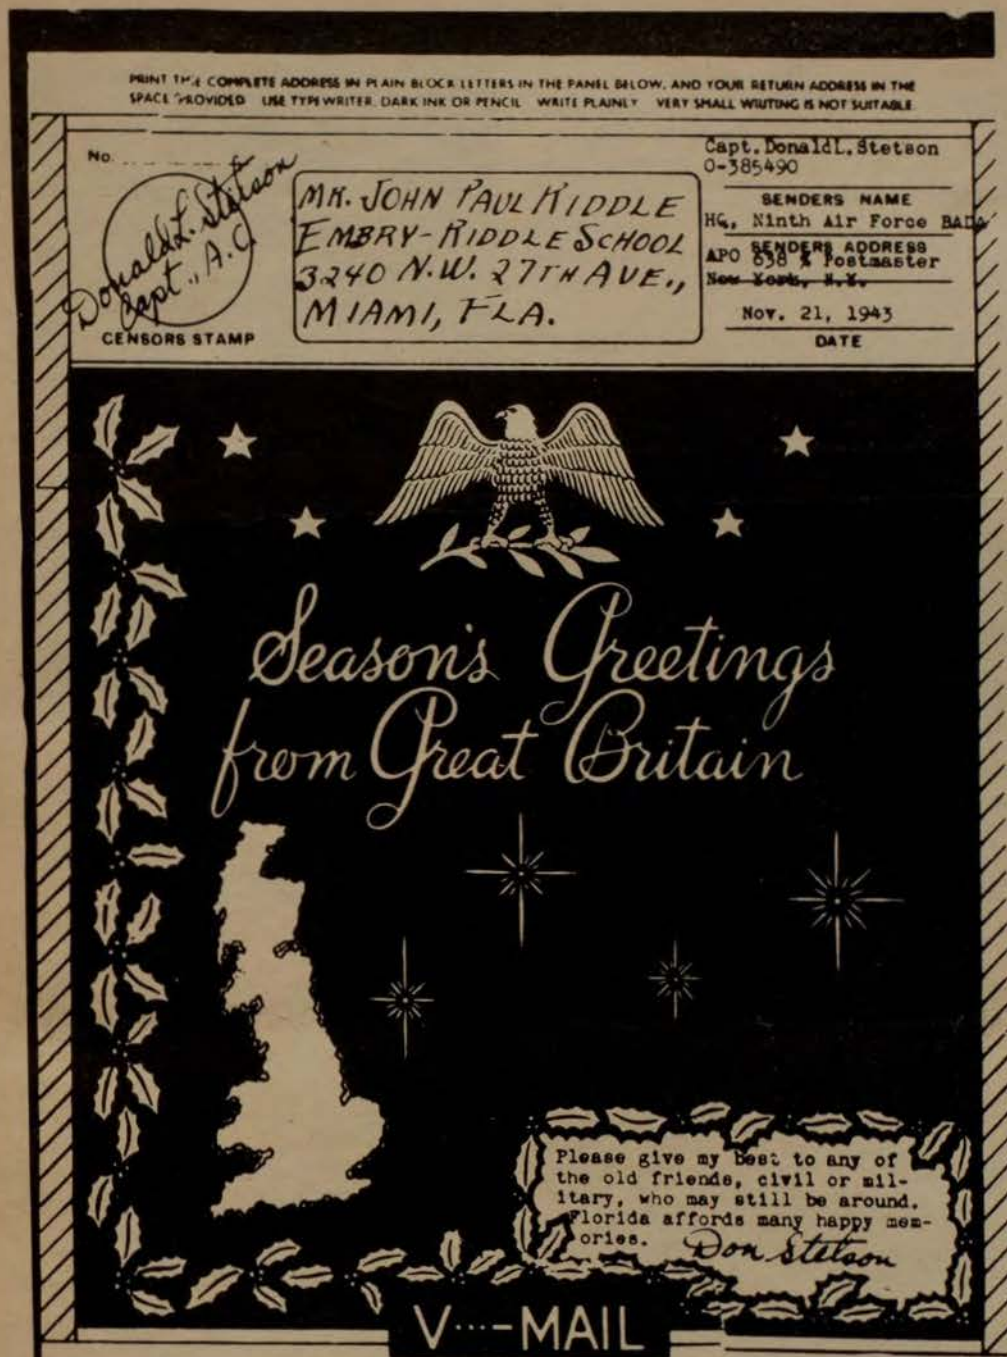 PRINT THE COMPLETE ADDRESS IN PLAIN BLOCK LETTERS IN THE PANEL BELOW, AND YOUR RETURN ADDRESS IN THE
SPACE PROVIDED USE TYPEWRITER, DARK INK OR PENCIL WRITE PLAINLY VERY SMALL WRITING IS NOT SUITABLE.
No.
Donald L. Stetson
Capt., A.C.
CENSORS STAMP
MR. JOHN PAUL RIDDLE
EMBRY-RIDDLE SCHOOL
3240 N.W. 27TH AVE.,
MIAMI, FLA.
Capt. Donald L. Stetson
O-385490
SENDERS NAME
HQ, Ninth Air Force BADA
SENDERS ADDRESS
APO 638 % Postmaster
New York, N.Y.
Nov. 21, 1943
DATE
Season's Greetings
from Great Britain
Please give my best to any of
the old friends, civil or mil-
itary, who may still be around.
Florida affords many happy mem-
ories. Don Stetson
V···-MAIL